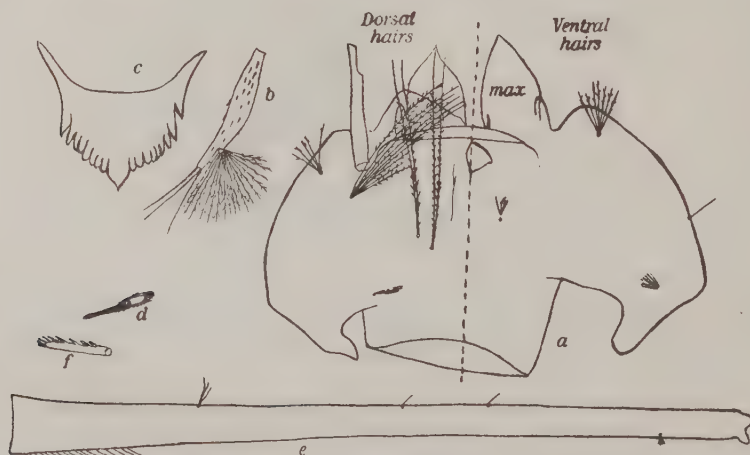 Dorsal
hairs
Ventral
hairs
c
b
max
d
f
a
e